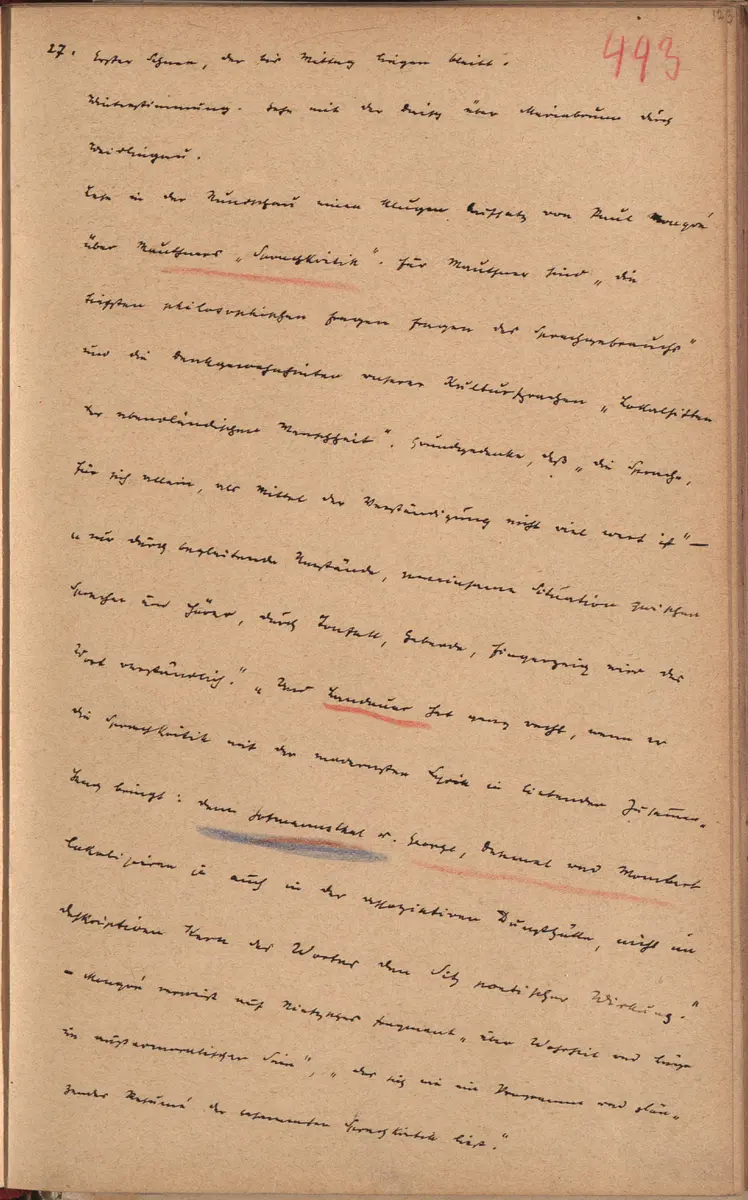 123
493
27. Erster Schnee, der bis Mittag liegen bleibt.
Winterstimmung. Gehe mit der über Mariabrunn durch
Weidlingau.
Lese in der Rundschau einen klugen Aufsatz von Paul Mongré
über Mauthners „Sprachkritik“. Für Mauthner sind „die
tiefsten philosophischen Fragen Fragen des Sprachgebrauchs“
und die Denkgewohnheiten unserer Kultursprachen „Lokalsitten
der abendländischen Menschheit“. Grundgedanke, daß „die Sprache,
für sich allein, als Mittel der Verständigung nicht viel wert ist“ –
„nur durch begleitende Umstände, gemeinsame Situation zwischen
Sprecher und Hörer, durch Tonfall, Geberde, Fingerzeig wird das
Wort verständlich.“ „Und Landauer hat ganz recht, wenn er
die Sprachkritik mit der modernsten Lyrik in liebenden Zusammen-
hang bringt: denn Hofmannsthal u. George, Dehmel und Mombert
lokalisieren ja auch in der assoziativen Dunsthülle, nicht im
deskriptiven Kern des Wortes den Sitz poetischer Wirkung.“
– Mongré verweist auf Nietzsches Fragment „über Wahrheit und Lüge
im außermoralischen Sinn“, „das sich wie ein Programm und glän-
zendes Resumé der gesammten Sprachkritik liest.“